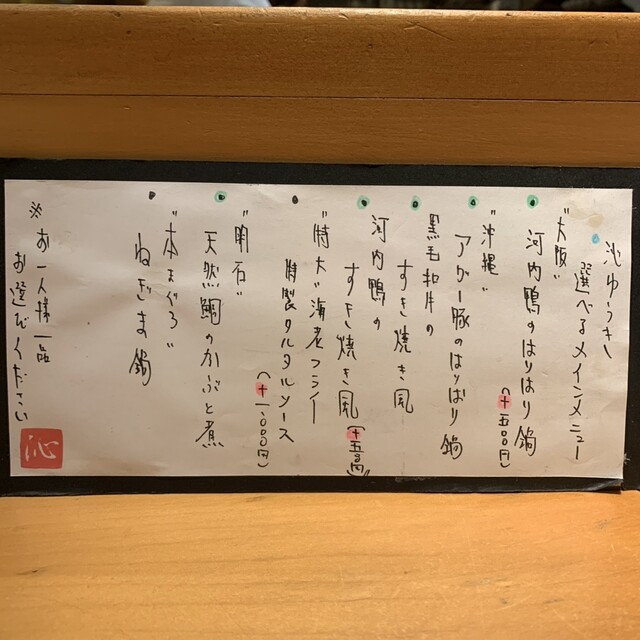 沁ゆうき
選べるメインメニュー
"大阪"
河内鴨のはりはり鍋
(+五〇〇円)
"沖縄"
アグー豚のはりはり鍋
黒毛和牛の
すき焼き風
河内鴨の
すき焼き風
(+五〇〇円)
"特大"海老フライ
特製タルタルソース
(+一、〇〇〇円)
"明石"
天然鯛のかぶと煮
"本まぐろ"
ねぎま鍋
※お一人様一品
お選びください
沁